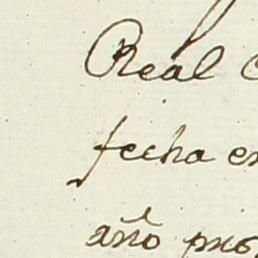 Real
fecha en
año pro